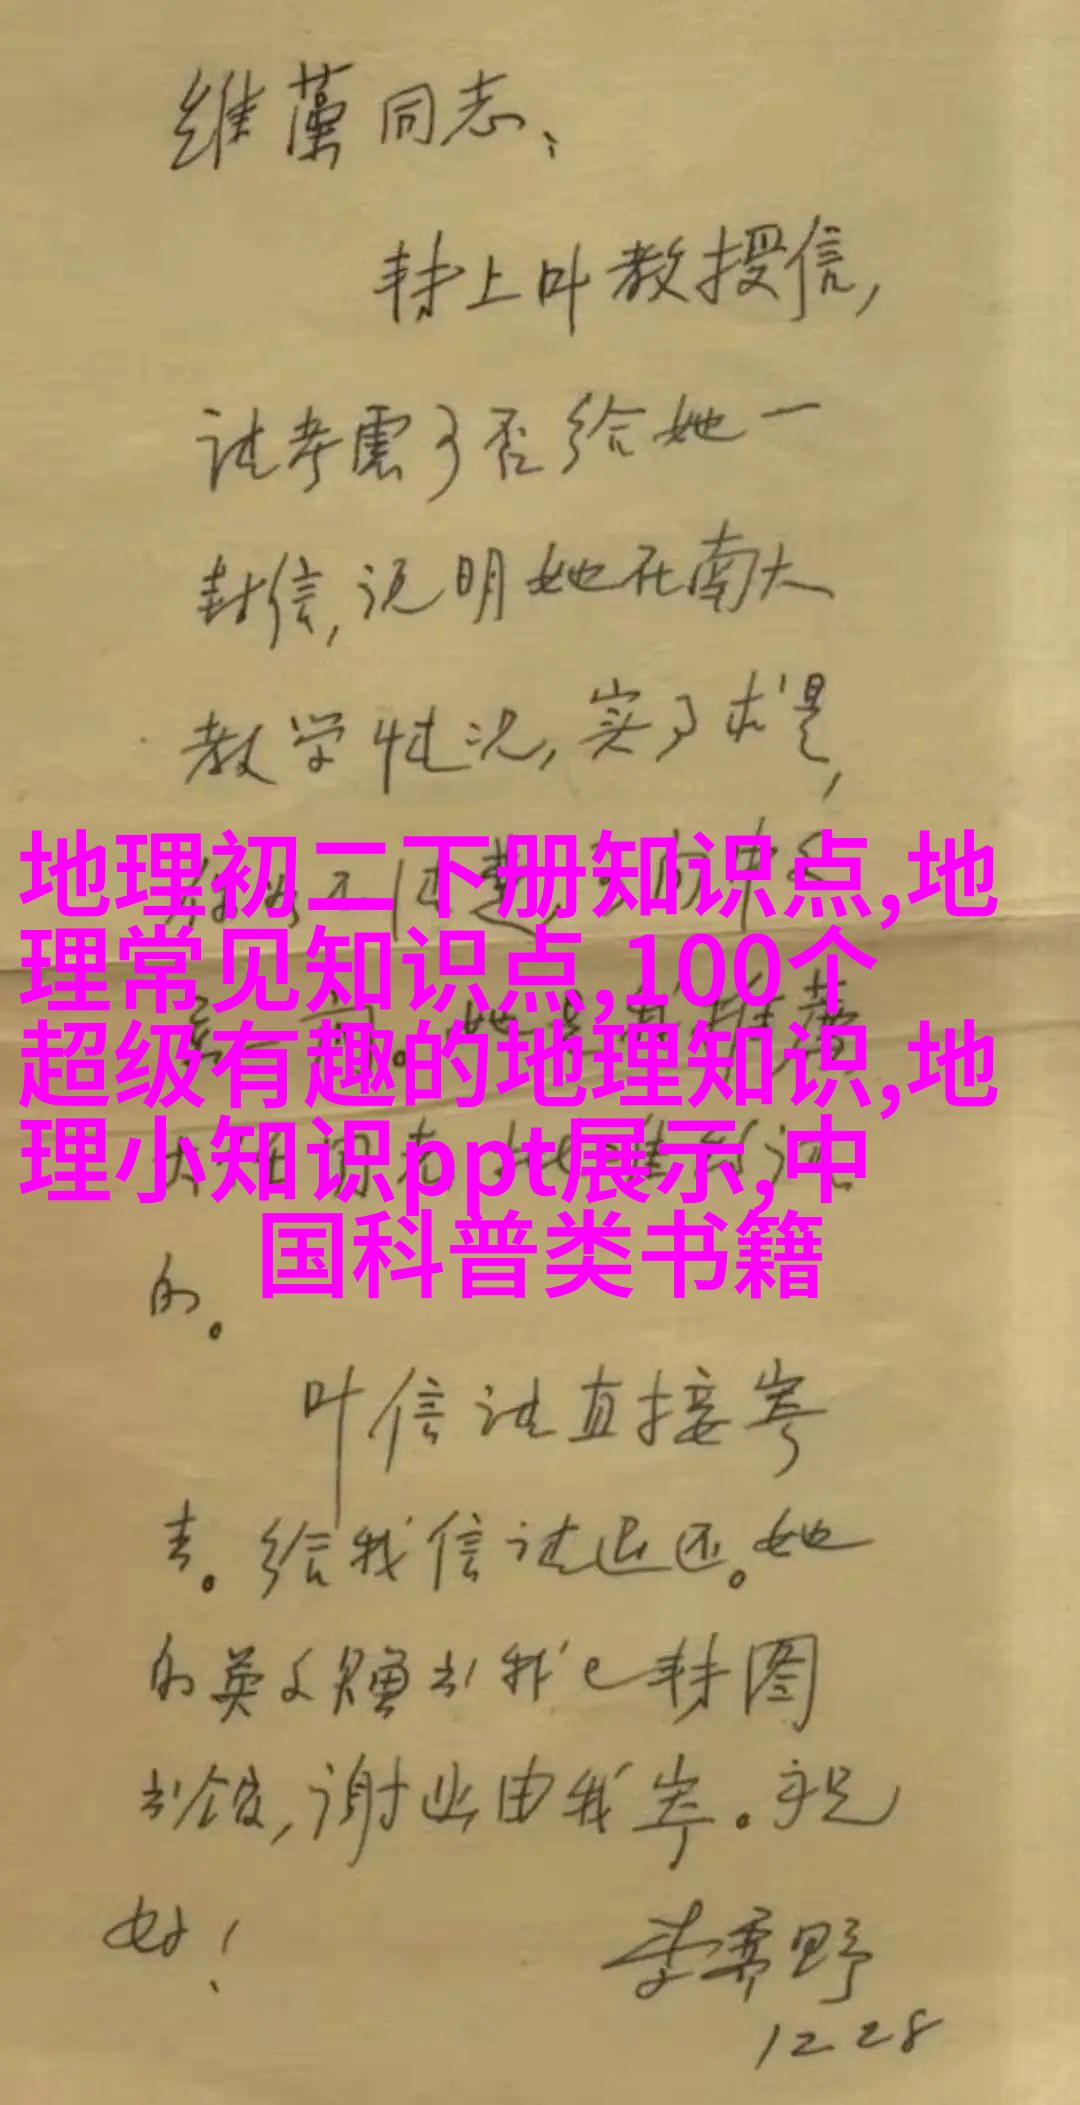 维藻同志：
转上叶教授信，
请考虑可否给她一
封信，说明她在南大
教学情况，实事求是，
地理初二下册知识点,地
理常见知识点,100个
超级有趣的地理知识,地
理小知识ppt展示,中
国科普类书籍
的。
叶信请直接寄
去。给我信请退还。她
的英文赠书我已转图
书馆，谢此由我寄。祝
好！
李霁野
12 28